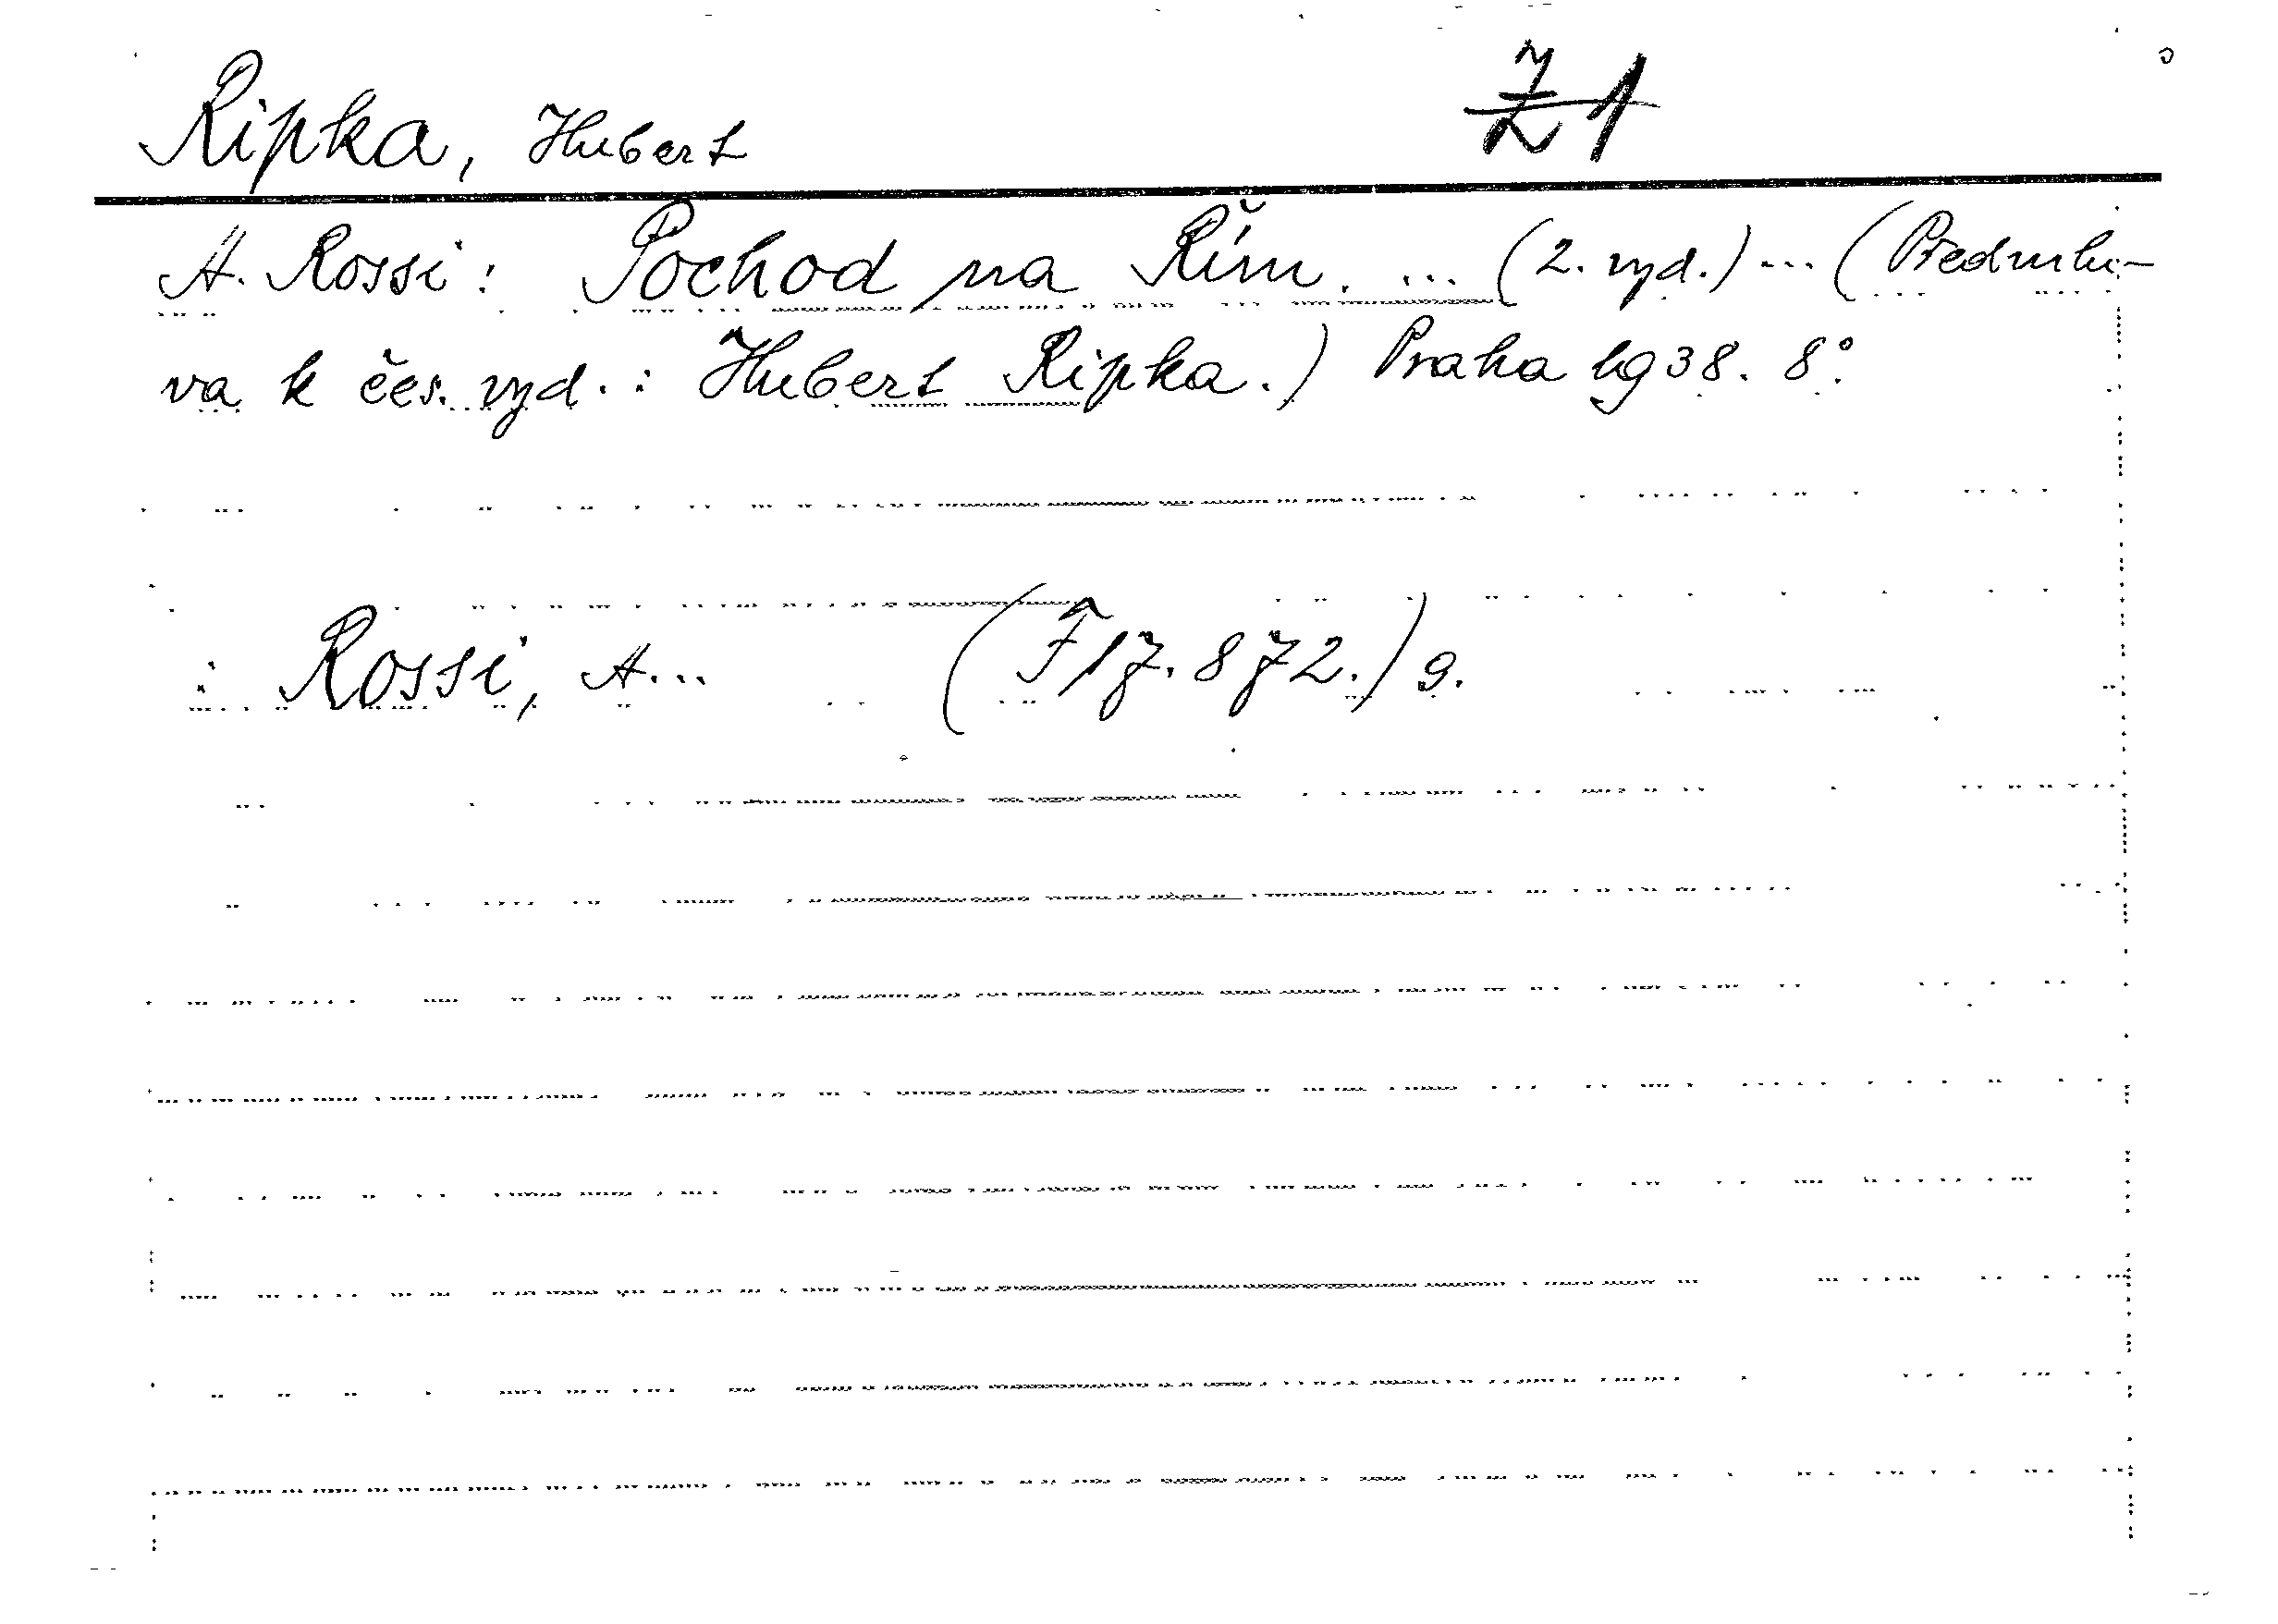 Ripka, Hubert Ž1
A. Rossi: Pochod na Řím. ... (2. vyd.) ... (Předmlu-
va k čes. vyd.: Hubert Ripka.) Praha 1938. 8°.
: Rossi, A... (F 17.872.) 9.